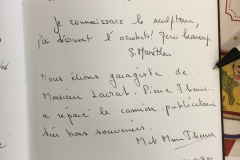 Je connaissais le sculpteur,
j'ai découvert l'acrobate! Merci beaucoup.
S.
Nous étions garagiste de
Monsieur Pierre Thomas
a réparé le camion publicitaire
très bons souvenirs.
M. et Mme Thomas